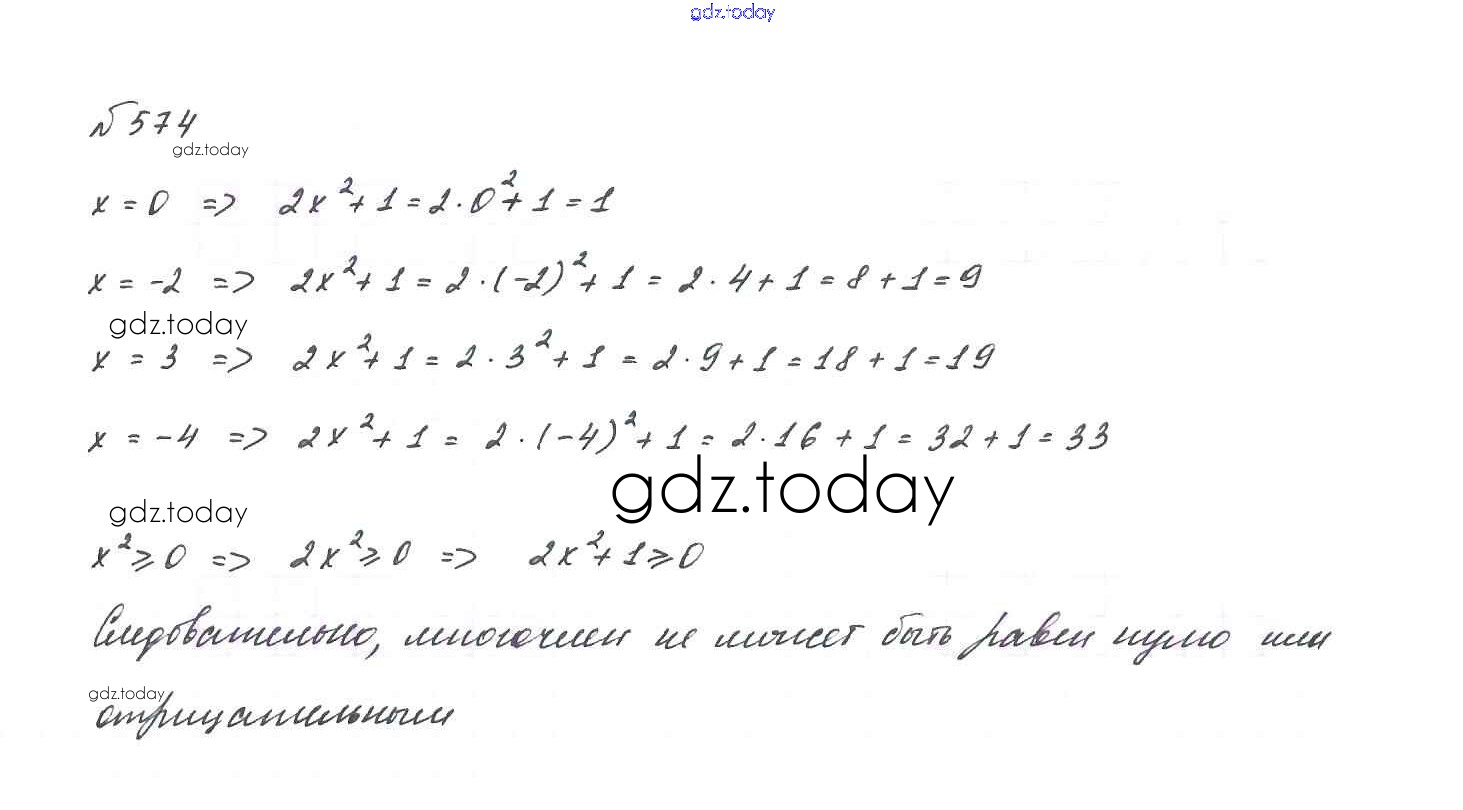 gdz.today
№574
gdz.today
x = 0 => 2x² + 1 = 2 · 0² + 1 = 1
x = -2 => 2x² + 1 = 2 · (-2)² + 1 = 2 · 4 + 1 = 8 + 1 = 9
gdz.today
x = 3 => 2x² + 1 = 2 · 3² + 1 = 2 · 9 + 1 = 18 + 1 = 19
x = -4 => 2x² + 1 = 2 · (-4)² + 1 = 2 · 16 + 1 = 32 + 1 = 33
gdz.today
gdz.today
x² ⩾ 0 => 2x² ⩾ 0 => 2x² + 1 ⩾ 0
Следовательно, многочлен не может быть равен нулю или
gdz.today
отрицательным